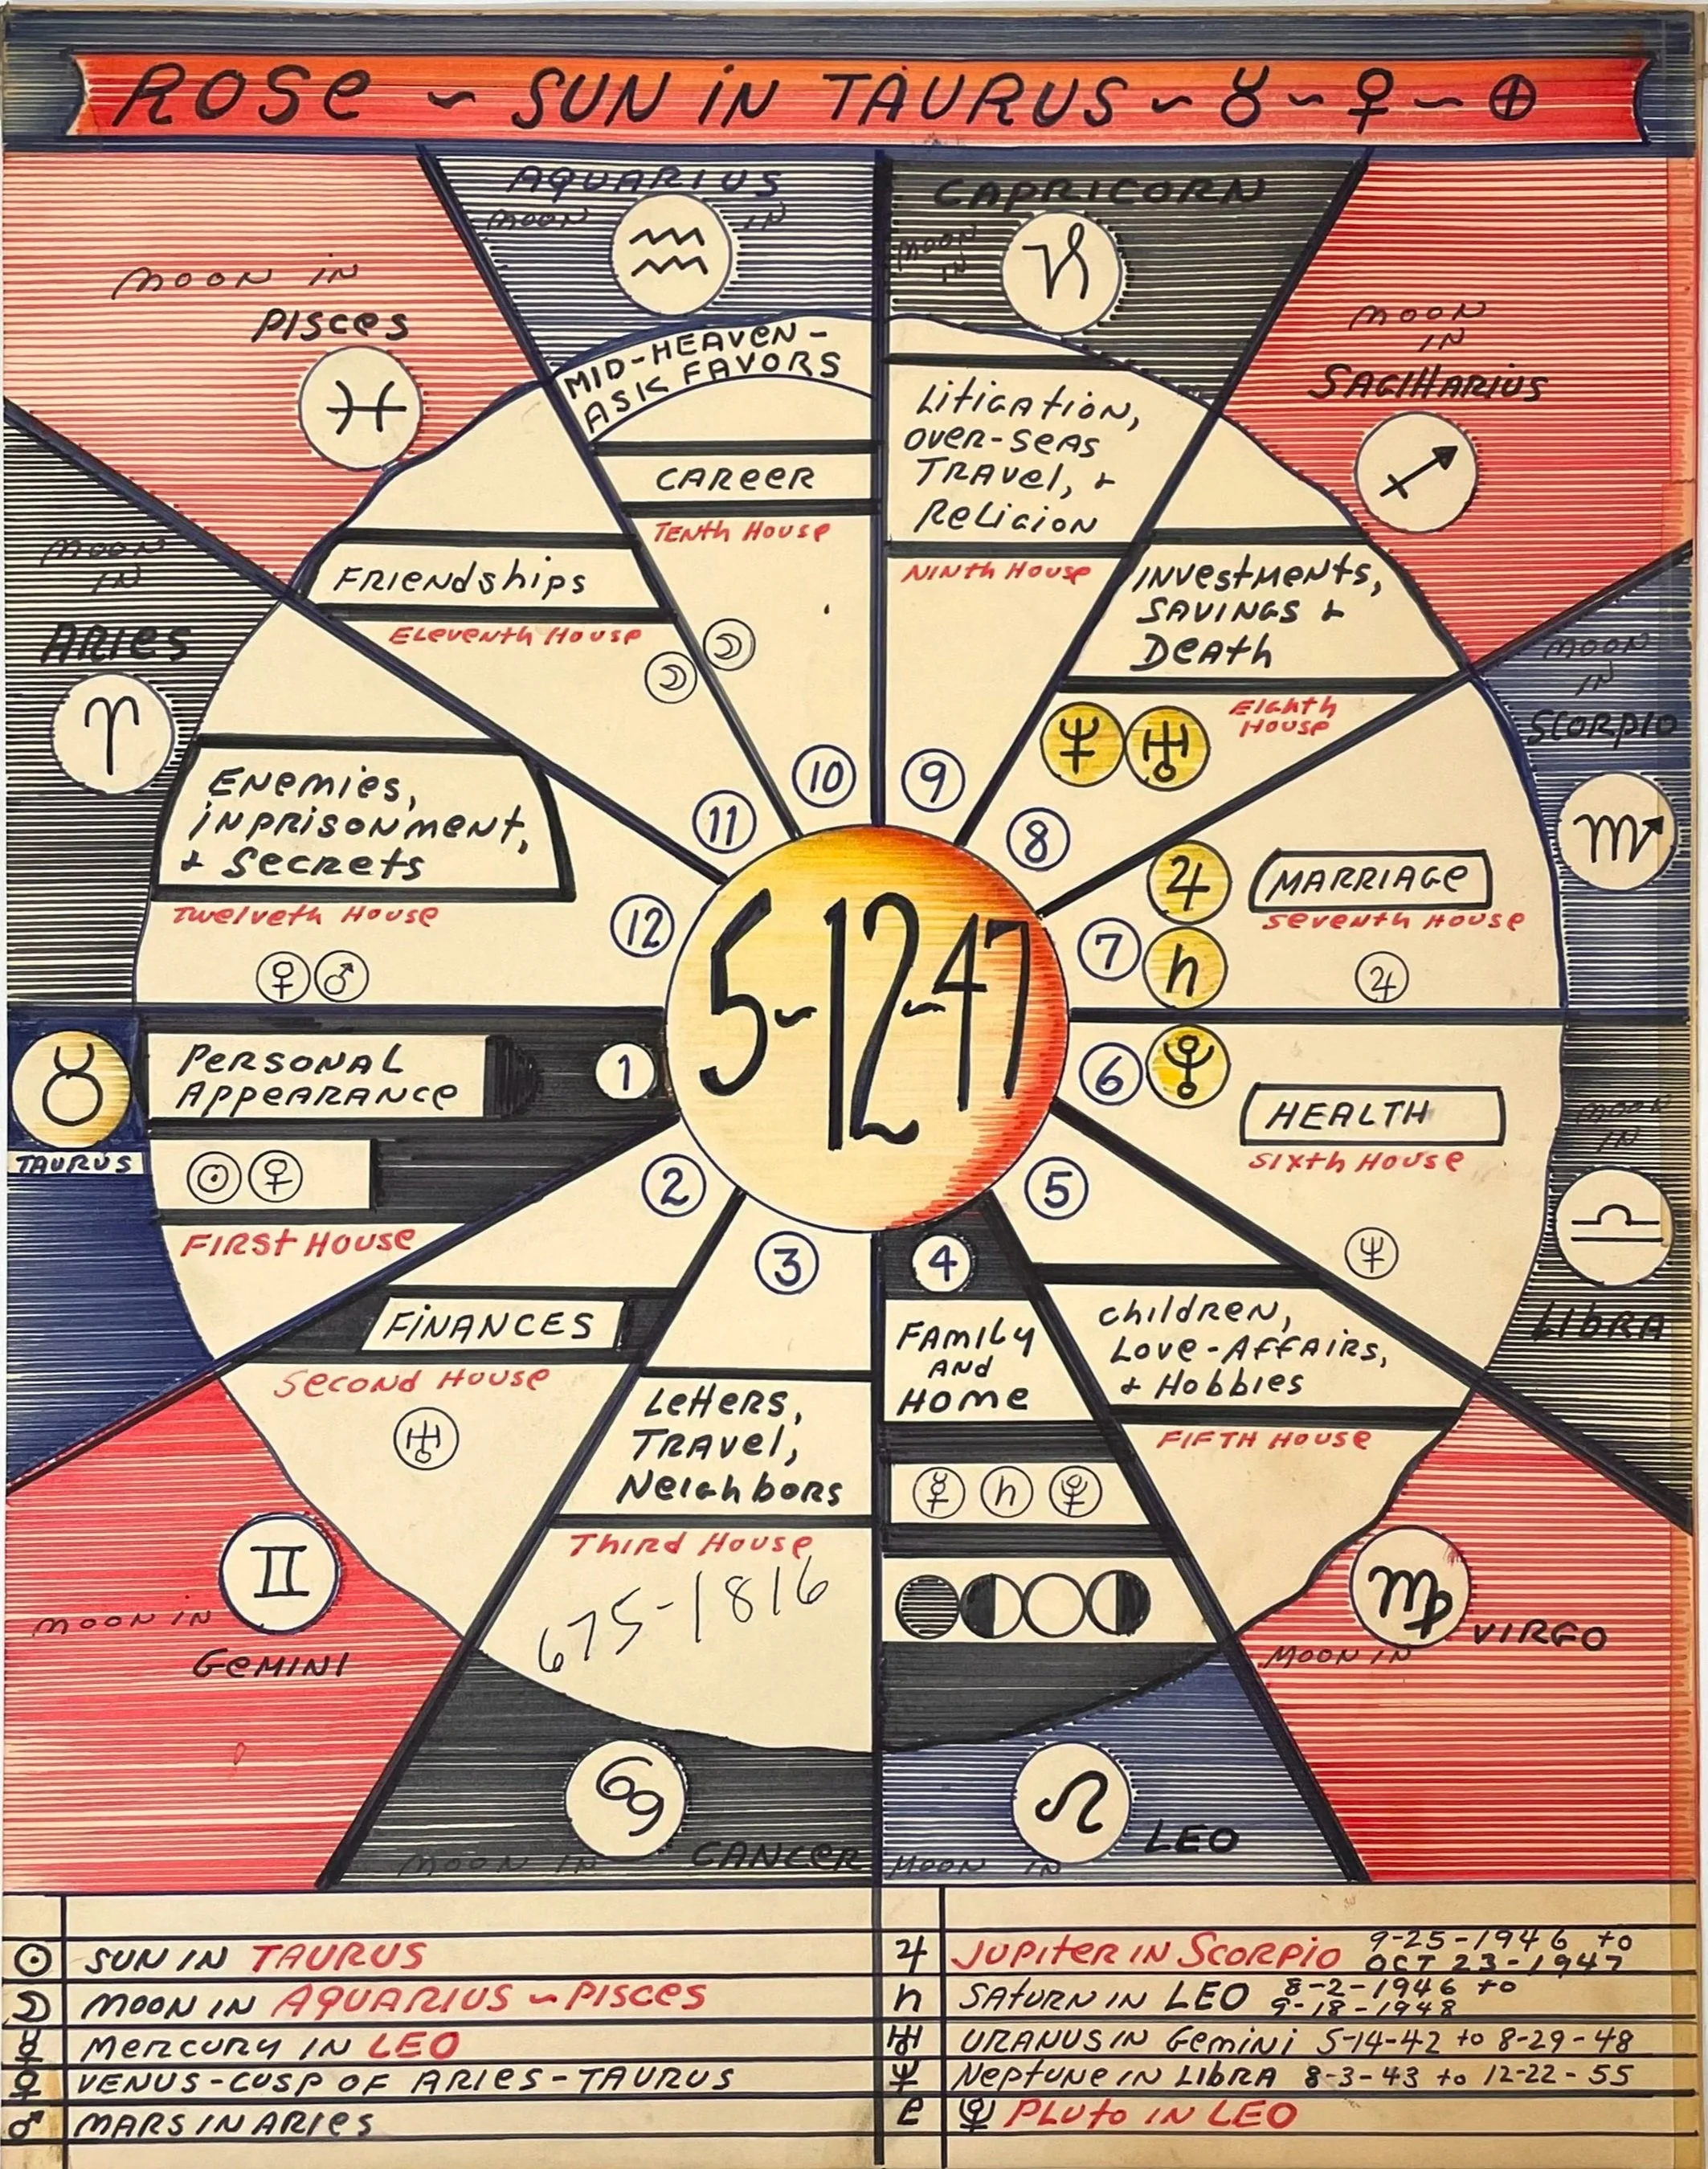 ROSE ~ SUN IN TAURUS ~ ♉ ~ ♀ ~ ⊕
AQUARIUS
MOON IN
♒
CAPRICORN
MOON
IN
♑
MOON IN
PISCES
♓
MOON
IN
SAGITTARIUS
♐
MID-HEAVEN-
ASK FAVORS
CAREER
TENTH HOUSE
LITIGATION,
OVER-SEAS
TRAVEL, &
RELIGION
NINTH HOUSE
FRIENDSHIPS
ELEVENTH HOUSE
☽ ☽
INVESTMENTS,
SAVINGS &
DEATH
EIGHTH
HOUSE
♆ ♅
MOON
IN
ARIES
♈
MOON
IN
SCORPIO
♏
10
9
11
8
ENEMIES,
INPRISONMENT,
& SECRETS
TWELVETH HOUSE
♀ ♂
12
5-12-47
7
♃
♄
MARRIAGE
SEVENTH HOUSE
♃
♉
TAURUS
PERSONAL
APPEARANCE
1
☉ ♀
FIRST HOUSE
6
♇
HEALTH
SIXTH HOUSE
♆
MOON
IN
♎
LIBRA
2
3
4
5
FINANCES
SECOND HOUSE
♅
LETTERS,
TRAVEL,
NEIGHBORS
THIRD HOUSE
675-1816
FAMILY
AND
HOME
☿ ♄ ♇
CHILDREN,
LOVE-AFFAIRS,
& HOBBIES
FIFTH HOUSE
♊
MOON IN
GEMINI
♍
VIRGO
MOON IN
♋
MOON IN CANCER
♌
LEO
MOON IN
☉ SUN IN TAURUS
☽ MOON IN AQUARIUS ~ PISCES
☿ MERCURY IN LEO
♀ VENUS-CUSP OF ARIES-TAURUS
♂ MARS IN ARIES
♃ JUPITER IN SCORPIO 9-25-1946 TO
OCT 23-1947
♄ SATURN IN LEO 8-2-1946 TO
9-18-1948
♅ URANUS IN GEMINI 5-14-42 TO 8-29-48
♆ NEPTUNE IN LIBRA 8-3-43 TO 12-22-55
♇ PLUTO IN LEO